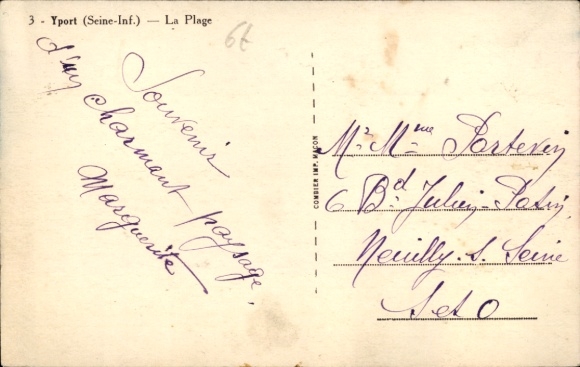 3 - Yport (Seine-Inf.) — La Plage
6t
Souvenir
d'un charmant paysage.
Marguerite
COMBIER IMP. MACON
Mr Mme Portevin
6 Bd Julien-Potin
Neuilly. s. Seine
S et O